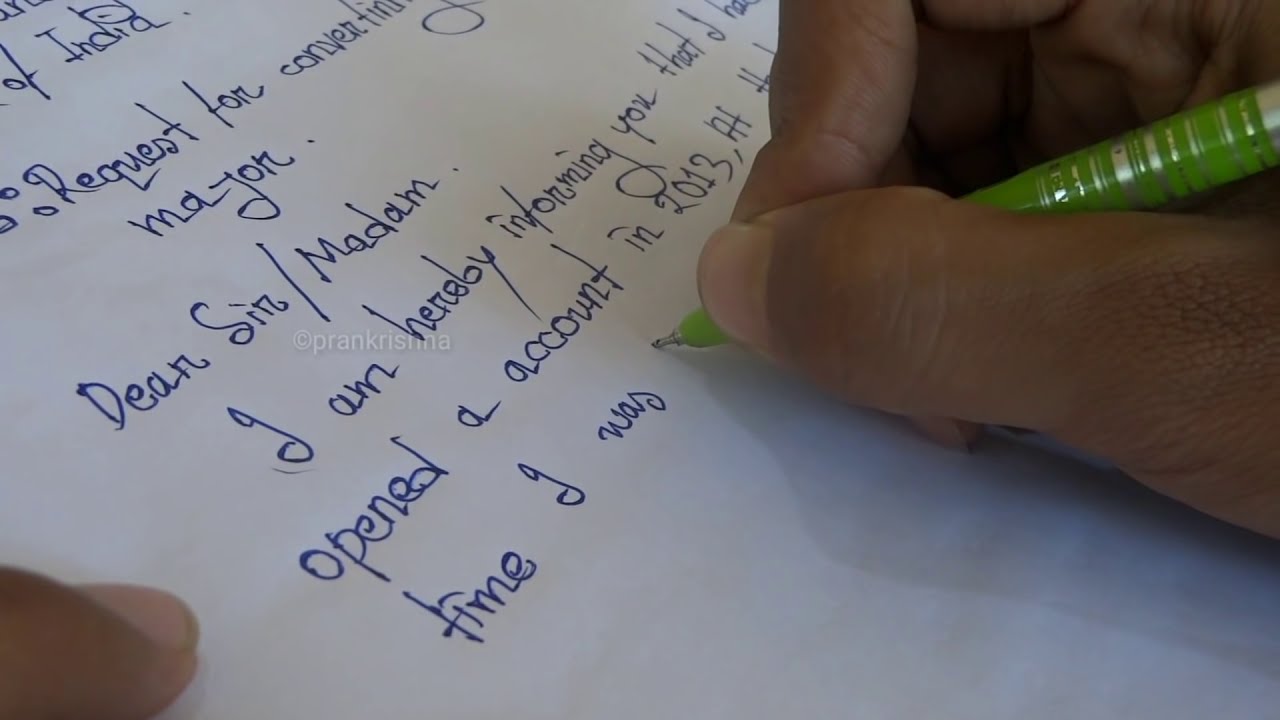 of India.
Request for converting
major.
Dear Sir/Madam.
I am hereby informing you that I had
opened a account in 2013, At
time I was
©prankrishna